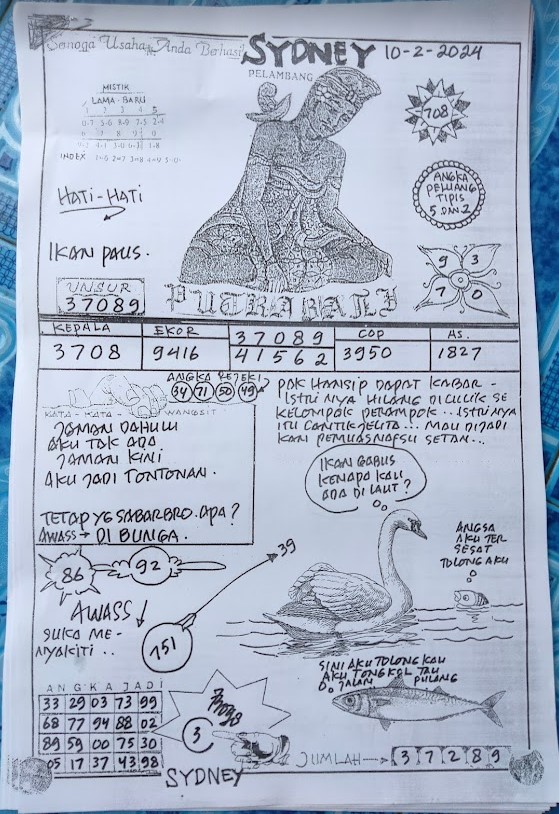 Semoga Usaha Anda Berhasil
SYDNEY 10-2-2024
PELAMBANG
MISTIK
LAMA - BARU
INDEX
708
HATI-HATI
ANGKA
PELUANG
TIPIS
5 DAN 2
IKAN PAUS.
9 3
7 0
UNSUR
37089
PUTRA BALI
KEPALA EKOR 37089 COP AS.
3708 9416 41562 3950 1827
ANGKA REJEKI
34 71 50 49
KATA - KATA WANGSIT
JAMAN DAHULU
AKU TAK ADA
JAMAN KINI
AKU JADI TONTONAN.
TETAP YG SABAR BRO. APA?
AWASS → DI BUNGA.
PAK HANSIP DAPAT KABAR -
ISTRI NYA HILANG DI CULIK SE
KELOMPOK PERAMPOK.. ISTRI NYA
ITU CANTIK JELITA... MAU DI JADI
KAN PEMUAS NAFSU SETAN...
IKAN GABUS
KENAPA KAU
ADA DI LAUT?
ANGSA
AKU TER
SESAT
TOLONG AKU
86 92
39
AWASS
SUKA ME-
NYAKITI..
151
SINI AKU TOLONG KAU
AKU TONGKOL TAU
JALAN PULANG
ANGKA JADI
33 29 03 73 99
68 77 94 88 02
89 59 00 75 30
05 17 37 43 98
3
JUMLAH → 3 7 2 8 9
SYDNEY